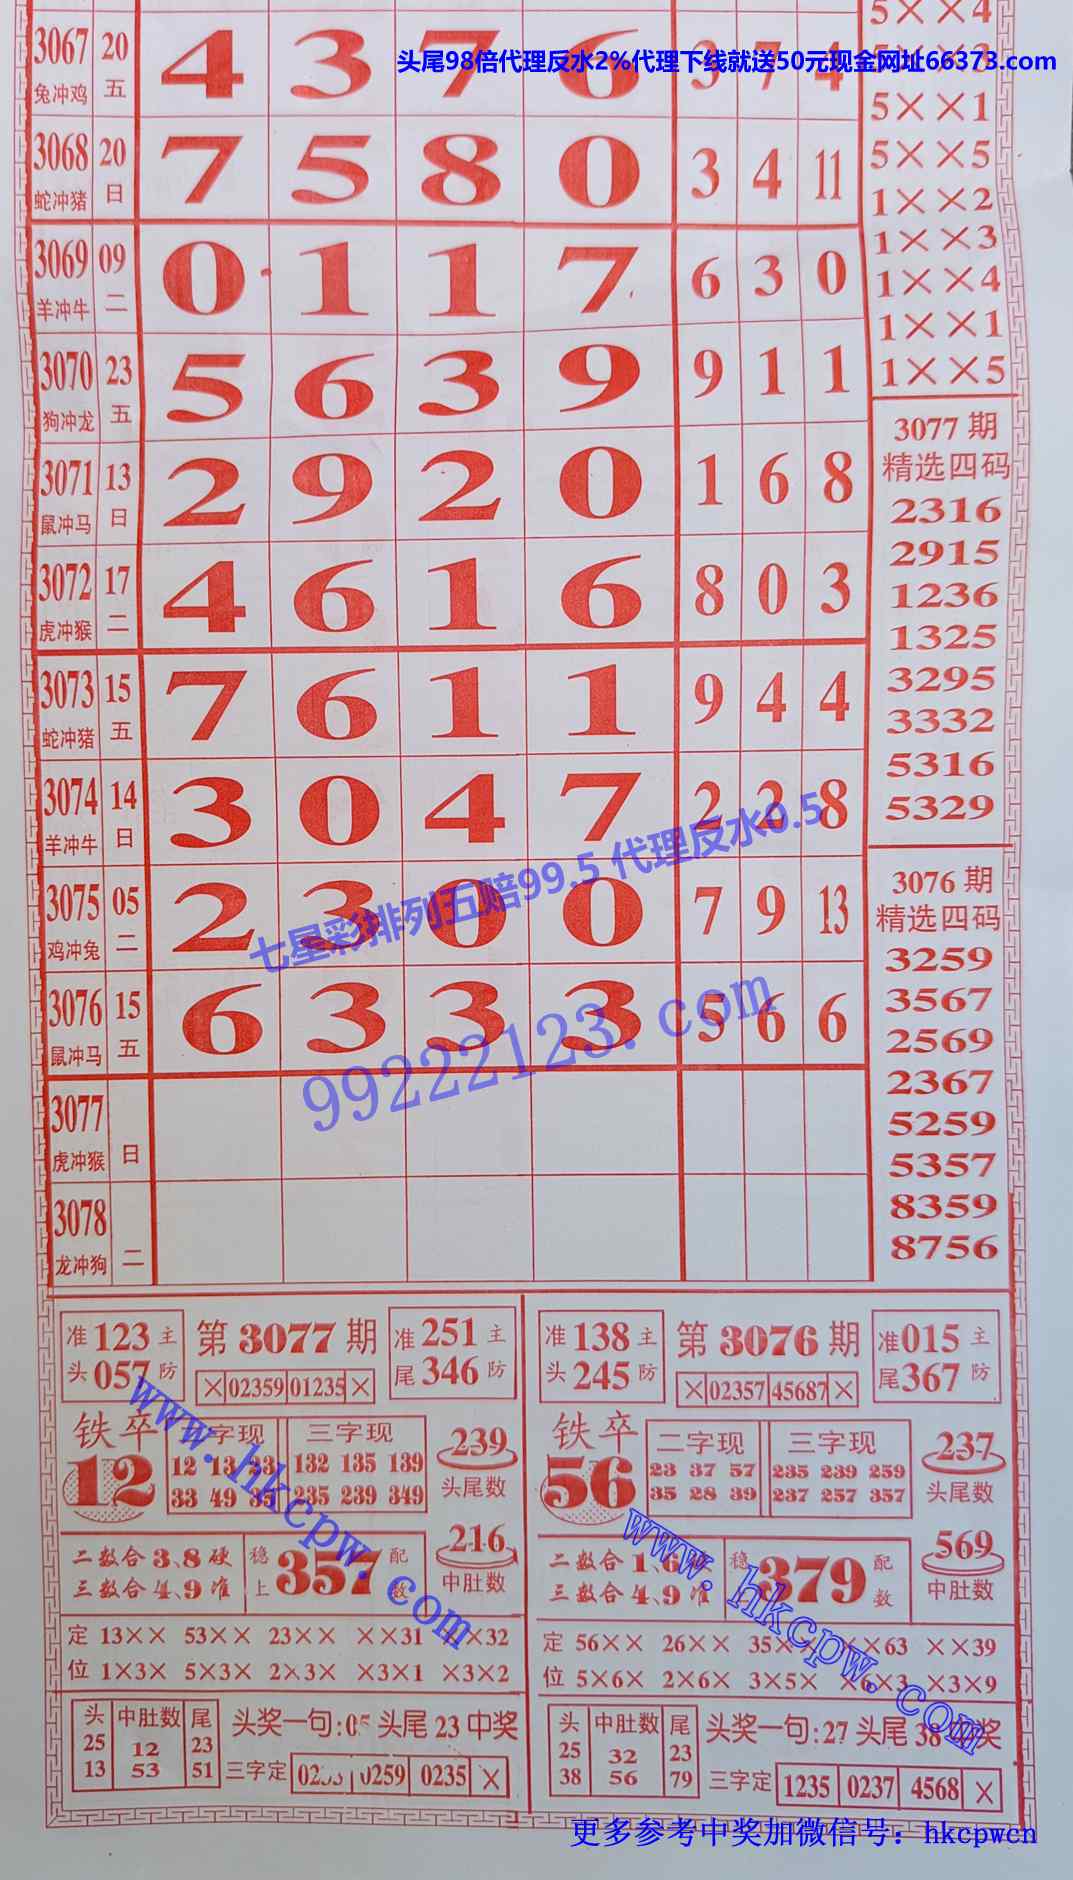 头尾98倍代理反水2%代理下线就送50元现金网址66373.com
3067 20 4 3 7 6 3 7 4
兔冲鸡 五
3068 20 7 5 8 0 3 4 11
蛇冲猪 日
3069 09 0 1 1 7 6 3 0
羊冲牛 二
3070 23 5 6 3 9 9 1 1
狗冲龙 五
3071 13 2 9 2 0 1 6 8
鼠冲马 日
3072 17 4 6 1 6 8 0 3
虎冲猴 二
3073 15 7 6 1 1 9 4 4
蛇冲猪 五
3074 14 3 0 4 7 2 2 8
羊冲牛 日
3075 05 2 3 0 0 7 9 13
鸡冲兔 二
3076 15 6 3 3 3 5 6 6
鼠冲马 五
3077
虎冲猴 日
3078
龙冲狗 二
5××4
5××3
5××1
5××5
1××2
1××3
1××4
1××1
1××5
3077期
精选四码
2316
2915
1236
1325
3295
3332
5316
5329
3076期
精选四码
3259
3567
2569
2367
5259
5357
8359
8756
七星彩排列五赔99.5 代理反水0.5
99222123.com
准头 123 057 主防
第3077期
× 02359 01235 ×
准尾 251 346 主防
铁卒
12
二字现
12 13 23
33 49 35
三字现
132 135 139
235 239 349
239
头尾数
二数合3、8硬
三数合4、9准
稳上 357 配数
216
中肚数
定 13×× 53×× 23×× ××31 ××32
位 1×3× 5×3× 2×3× ×3×1 ×3×2
头 25 13
中肚数 12 53
尾 23 51
头奖一句:05头尾23中奖
三字定 0259 0235 ×
准头 138 245 主防
第3076期
× 02357 45687 ×
准尾 015 367 主防
铁卒
56
二字现
23 37 57
35 28 39
三字现
235 239 259
237 257 357
237
头尾数
二数合1、6硬
三数合4、9准
稳 379 配数
569
中肚数
定 56×× 26×× 35×× ××63 ××39
位 5×6× 2×6× 3×5× ×6×3 ×3×9
头 25 38
中肚数 32 56
尾 23 79
头奖一句:27头尾38中奖
三字定 1235 0237 4568 ×
www.hkcpw.com
www.hkcpw.com
更多参考中奖加微信号：hkcpwcn